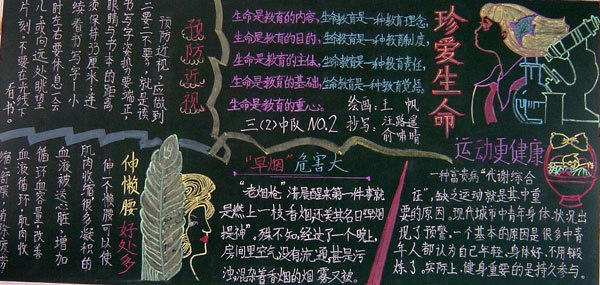 珍爱生命
生命是教育的内容，生命教育是一种教育理念，
生命是教育的目的，生命教育是一种教育制度，
生命是教育的主体，生命教育是一种教育责任，
生命是教育的基础，生命教育是一种教育觉悟。
生命是教育的重心。
绘画：王帆
三(2)中队 NO.2 抄写：汪路遥
俞啸晴
预防近视
预防近视，应做到
二要二不要，就是读
书写字姿势要端正
眼睛与书本的距离
须保持33厘米，连
续看书写字1小
时左右要休息一会
儿或向远处眺望
片刻，不要在光线下
看书。
伸懒腰好处多
伸一个懒腰可以使
肌肉收缩很多淤积的
血液被送心脏，增加
循环血容量，改善
血液循环肌肉收
缩舒展，消除疲劳
"早烟"危害大
"老烟枪"清晨醒来第一件事就
是燃上一枝香烟还美其名曰早烟
提神"，殊不知，经过了一个晚上，
房间里空气没有流通，甚是污
浊，混杂着香烟的烟雾又被
运动更健康
一种富贵病"代谢综合
征"，缺乏运动就是其中重
要的原因，现代城市中青年身体状况出
现了预警，一个基本的原因是很多中青
年人都认为自己年轻，身体好，不用锻
炼了。实际上，健身重要的是持久参与。